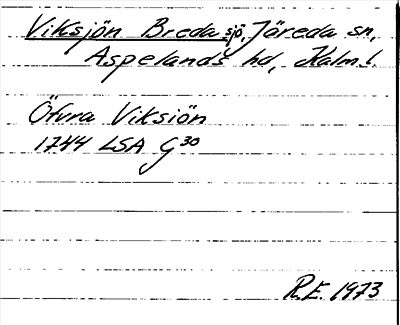 Viksjön Breda sjö, Järeda sn,
Aspelands hd, Kalm.l.
Öfvra Viksiön
1744 LSA G30
R.E. 1973